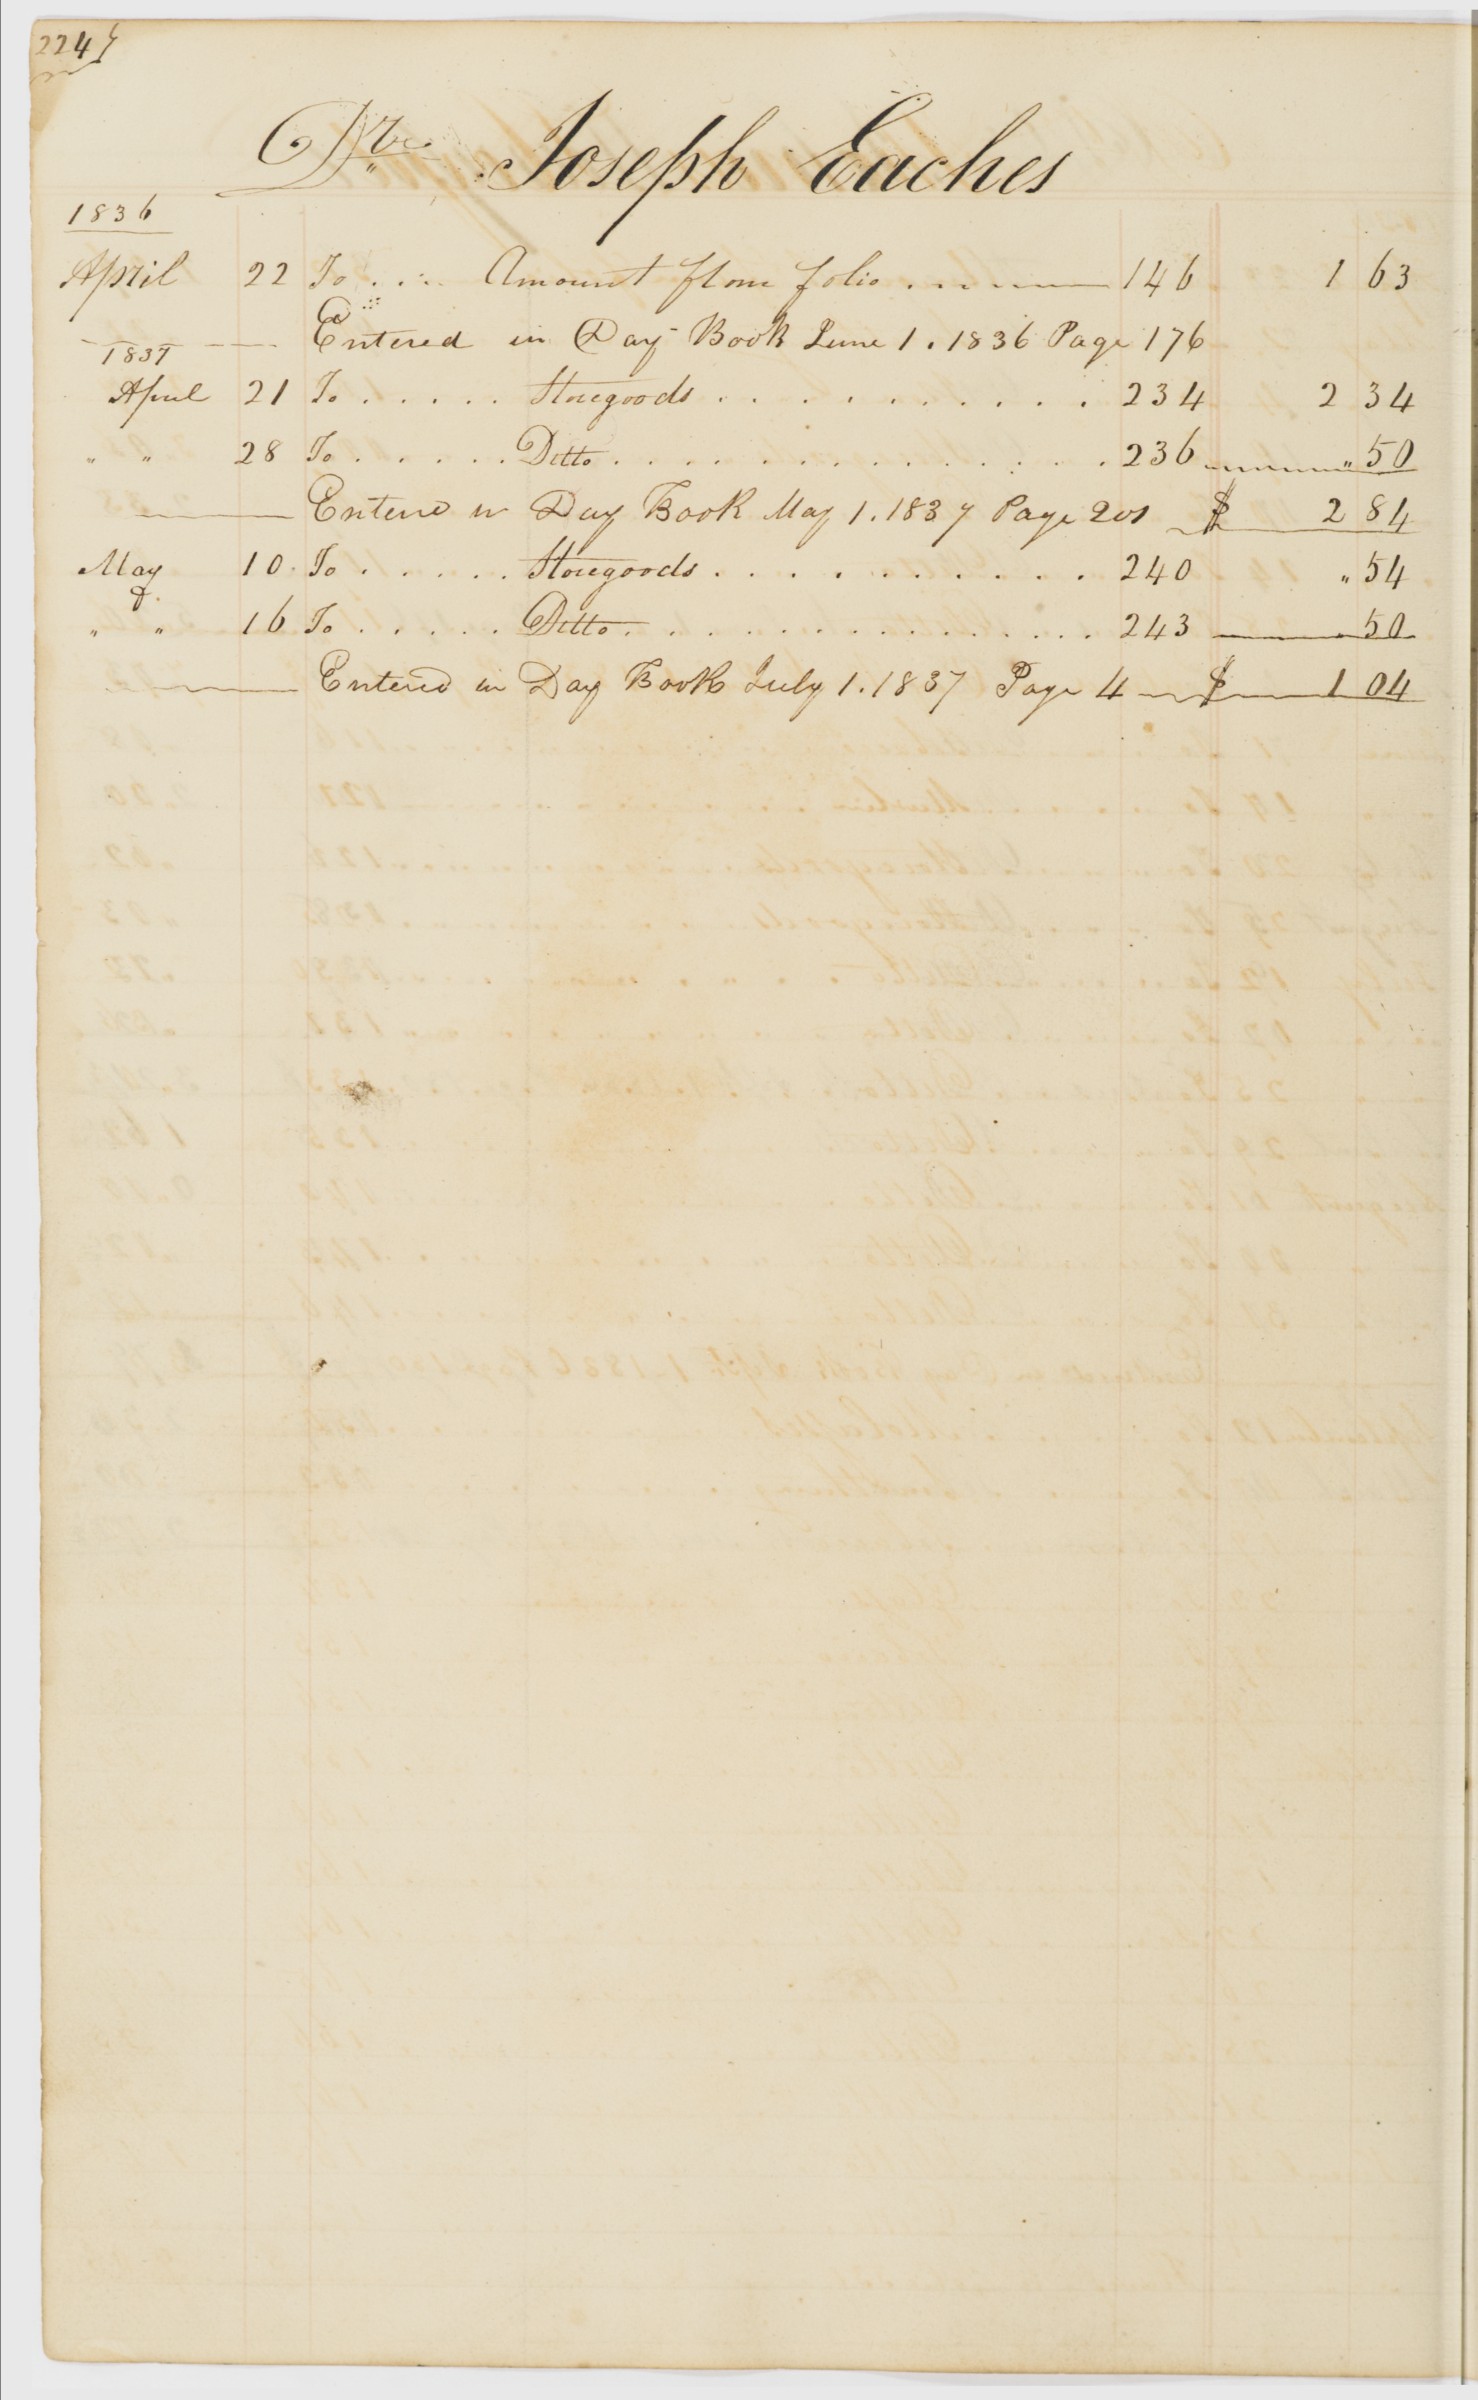 224
Dr. Joseph Eaches
1836
April 22 To . . . . Amount from folio . . . . . 146 1 63
Entered in Day Book June 1. 1836 Page 176
1837
April 21 To . . . . . Storegoods . . . . . . . . . . . 234 2 34
" " 28 To . . . . . Ditto . . . . . . . . . . . . . . 236 " 50
Entered in Day Book May 1. 1837 Page 201 $ 2 84
May 10 To . . . . . Storegoods . . . . . . . . . . 240 " 54
" " 16 To . . . . . Ditto . . . . . . . . . . . . . . 243 " 50
Entered in Day Book July 1. 1837 Page 4 $ 1 04